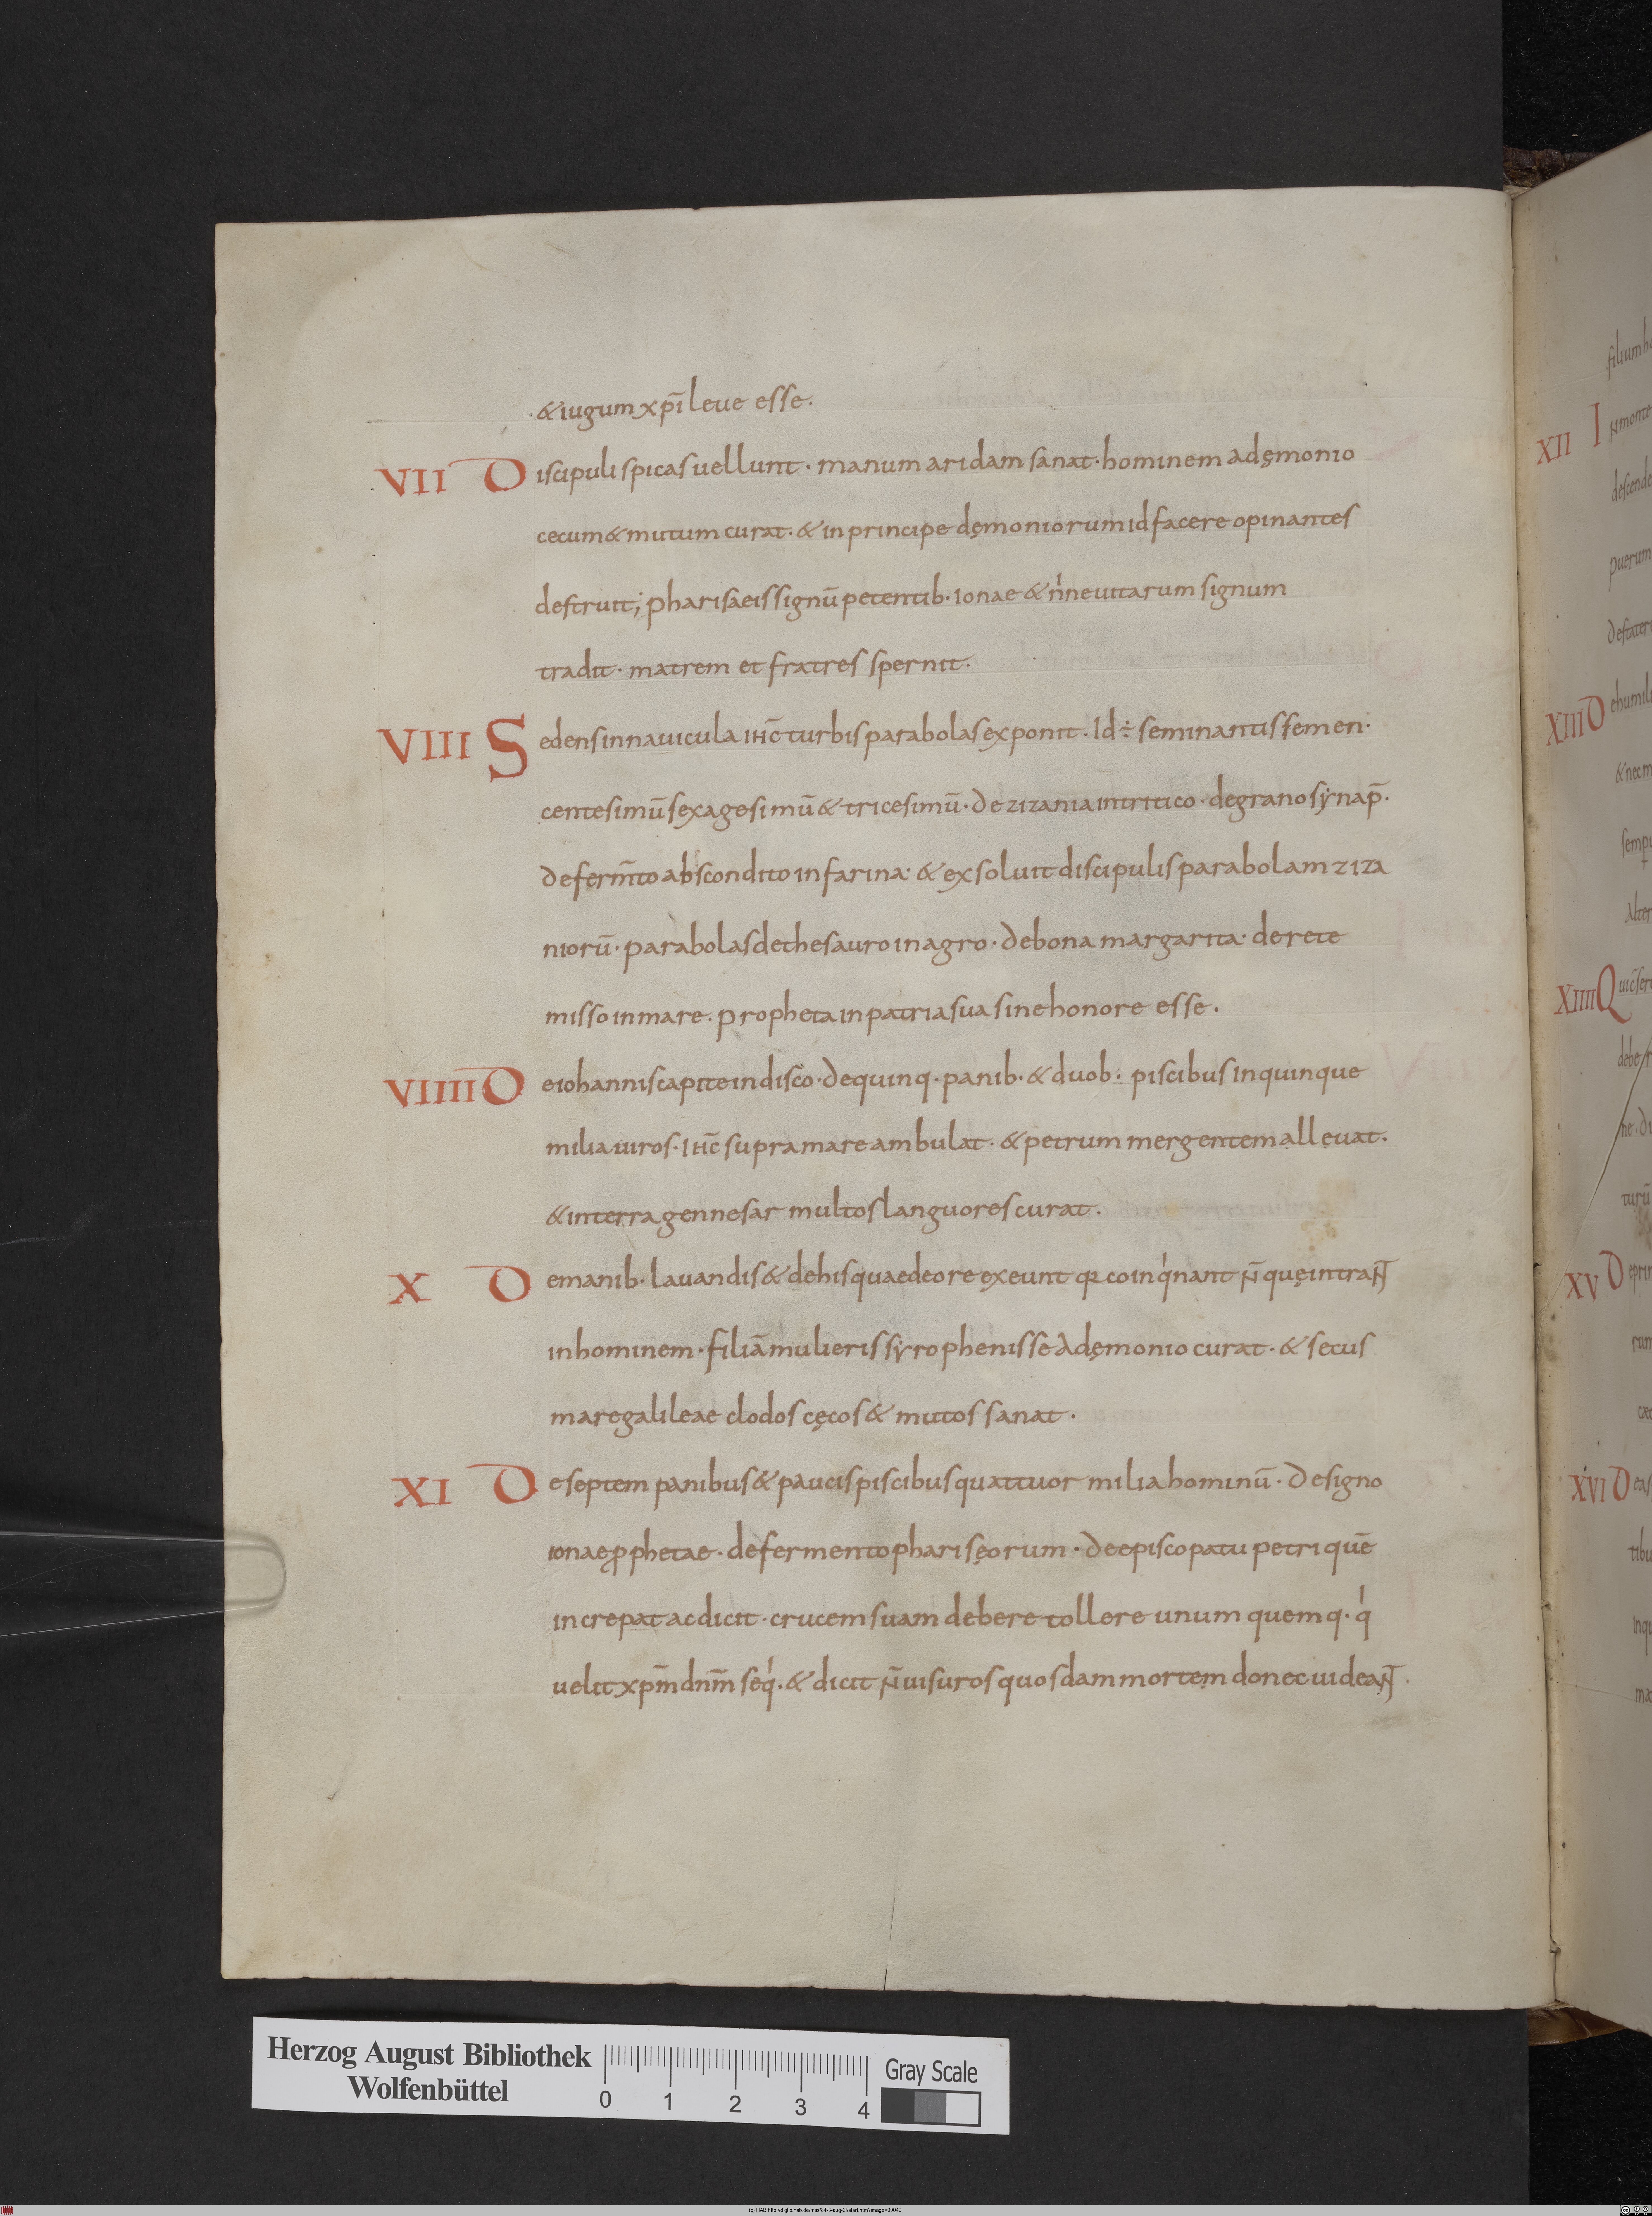 & iugum xp̄i leue esse.
VII Discipuli spicas uellunt · manum aridam sanat · hominem a dęmonio
cecum & mutum curat · & in principe dęmoniorum id facere opinantes
destruit; pharisaeis signū petentib · ionae & nineuitarum signum
tradit · matrem et fratres spernit.
VIII Sedens in nauicula ihc̄ turbis parabolas exponit. Id ÷ seminantis semen ·
centesimū sexagesimū & tricesimū · de zizania in tritico · de grano synap̄.
de ferm̄to abscondito in farina · & exsoluit discipulis parabolam ziza
niorū · parabolas de thesauro in agro · de bona margarita · de rete
misso in mare. propheta in patria sua sine honore esse.
VIIII De iohannis capite in disco · de quinq · panib · & duob : piscibus in quinque
milia uiros · ihc̄ supra mare ambulat · & petrum mergentem alleuat.
& in terra gennesar multos languores curat.
X De manib · lauandis & de his quae de ore exeunt qr coinqͥnant n̄ quę intraNT
in hominem · filiā mulieris syrophenisse a dęmonio curat · & secus
mare galileae clodos cęcos & mutos sanat.
XI De septem panibus & paucis piscibus quattuor milia hominū · de signo
ionae ꝓphetae · de fermento phariseorum · de episcopatu petri quē
increpat ac dicit · crucem suam debere tollere unum quemq · qͥ
uelit xpm̄ dnm̄ seqͥ · & dicit n̄ uisuros quosdam mortem donec uideaNT
XII In monte
descende
puerum
de stater
XIII De humili
& nec m
semp
Alter
XIIII Q
debe
turū
XV De prin
XVI De as
tibu
inqu
Herzog August Bibliothek
Wolfenbüttel
0 1 2 3 4
Gray Scale
(c) HAB http://diglib.hab.de/mss/84-3-aug-2f/start.htm?image=00040